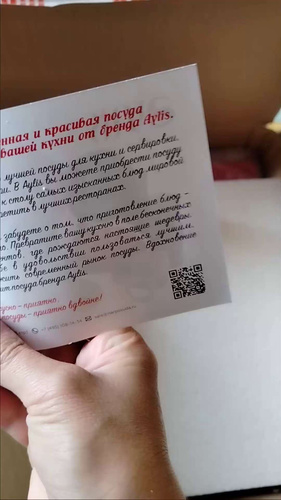 нная и красивая посуда
вашей кухни от бренда Aylis.
лучшей посуды для кухни и сервировки.
В Aylis вы можете приобрести посуду
к столу самых изысканных блюд мировой
в лучших ресторанах.
забудете о том, что приготовление блюд –
Превратите вашу кухню в поле бесконечных
нтов, где рождаются настоящие шедевры.
в удовольствии пользоваться лучшим.
современный рынок посуды. Вдохновение
посуда бренда Aylis.
– приятно.
посуды – приятно вдвойне!